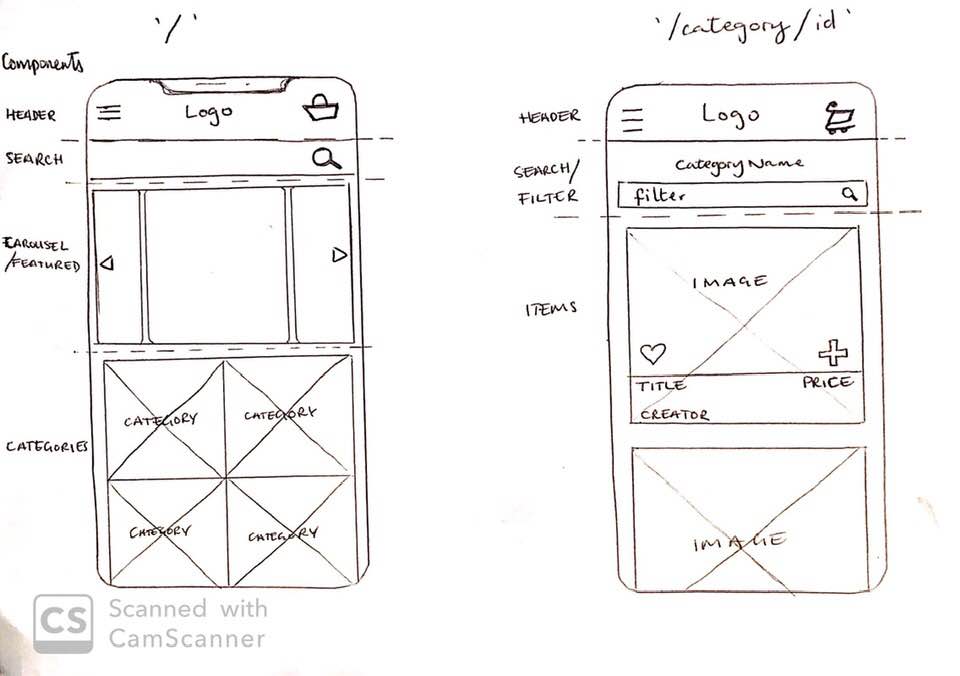 '/'
Components
HEADER
Logo
SEARCH
CAROUSEL
/FEATURED
CATEGORIES
CATEGORY
CATEGORY
CATEGORY
CATEGORY
'/category/id'
HEADER
Logo
SEARCH/
FILTER
Category Name
filter
ITEMS
IMAGE
TITLE
PRICE
CREATOR
IMAGE
CS
Scanned with
CamScanner